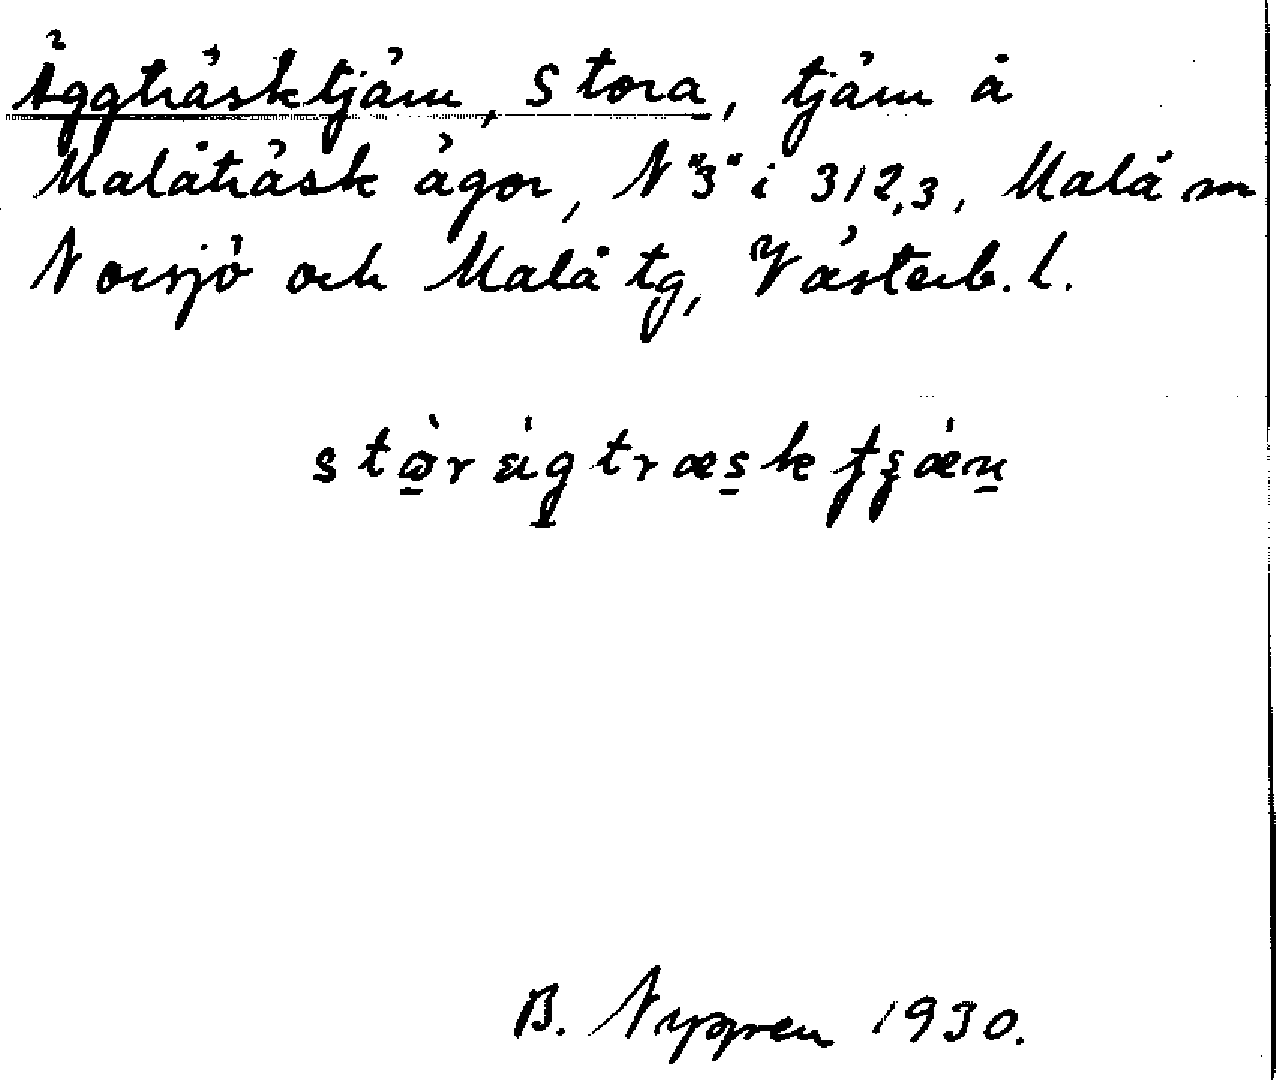 Äggträsktjärn, Stora, tjärn å
Malåträsk ägor, N "3" i 312,3, Malå sn
Norsjö och Malå tg, Västerb. l.
B. Nygren 1930.